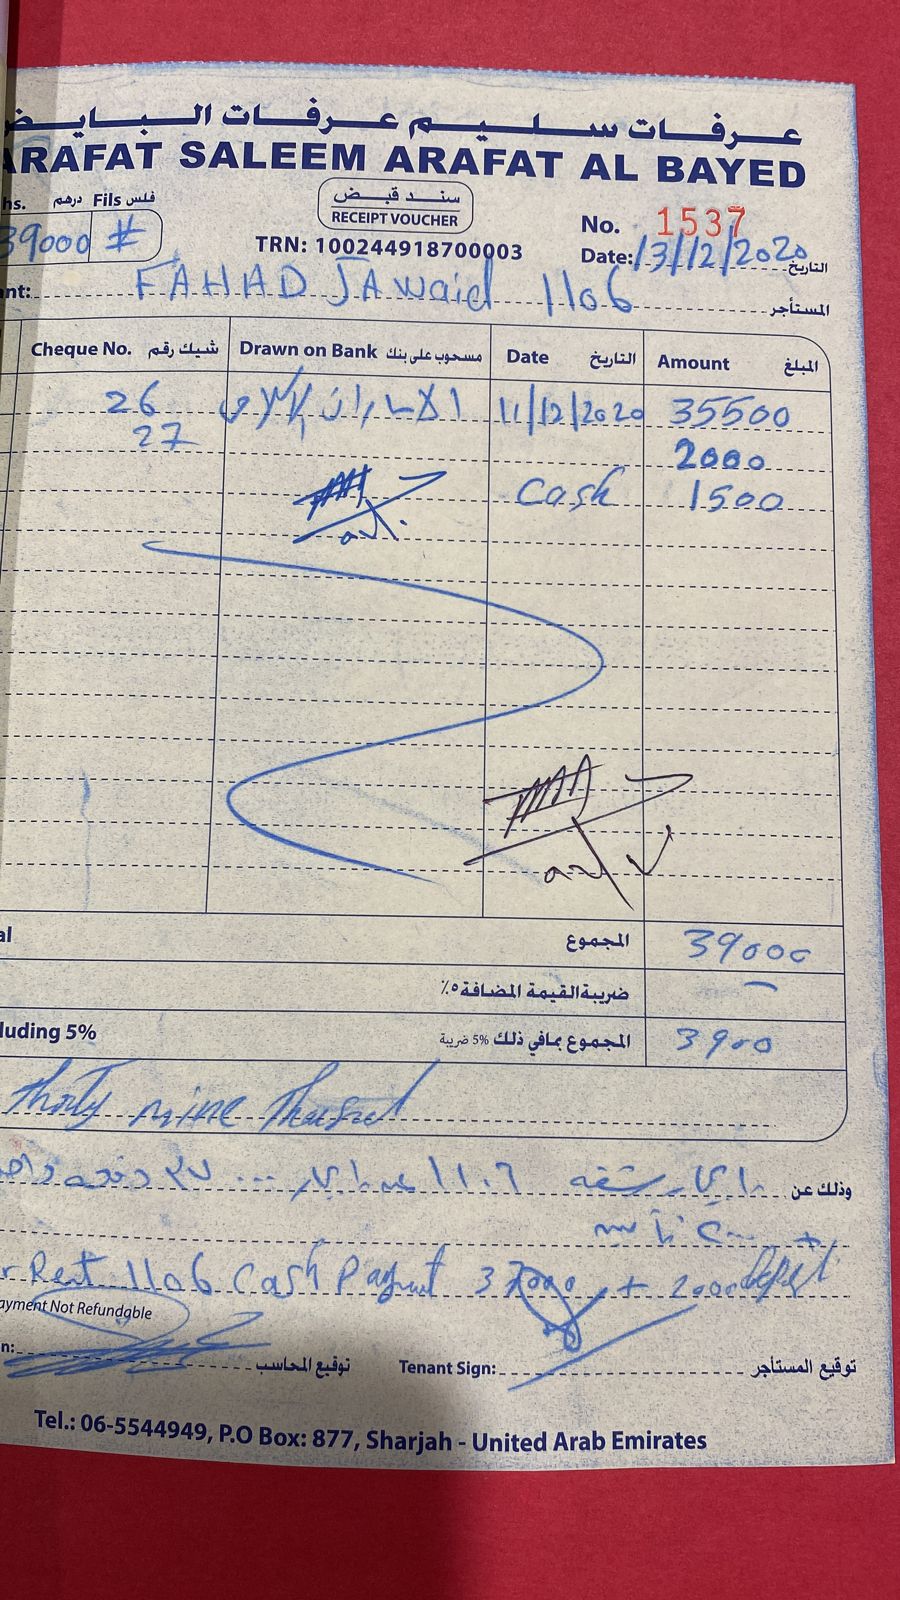 عرفات سليم عرفات البايض
ARAFAT SALEEM ARAFAT AL BAYED
hs. درهم Fils فلس
39000 #
سند قبض
RECEIPT VOUCHER
TRN: 100244918700003
No. 1537
Date: 13/12/2020 التاريخ
nt: FAHAD JAwaid 1106 المستأجر
Cheque No. شيك رقم Drawn on Bank مسحوب على بنك Date التاريخ Amount المبلغ
26 11/12/2020 35500
27 2000
Cash 1500
al المجموع 39000
ضريبة القيمة المضافة ٥٪ —
luding 5% المجموع بمافي ذلك 5% ضريبة 3900
Thirty nine
وذلك عن شقه ١١٠٦
+
r Rent 1106 Cash + 2000
ayment Not Refundable
n: توقيع المحاسب Tenant Sign: توقيع المستأجر
Tel.: 06-5544949, P.O Box: 877, Sharjah - United Arab Emirates